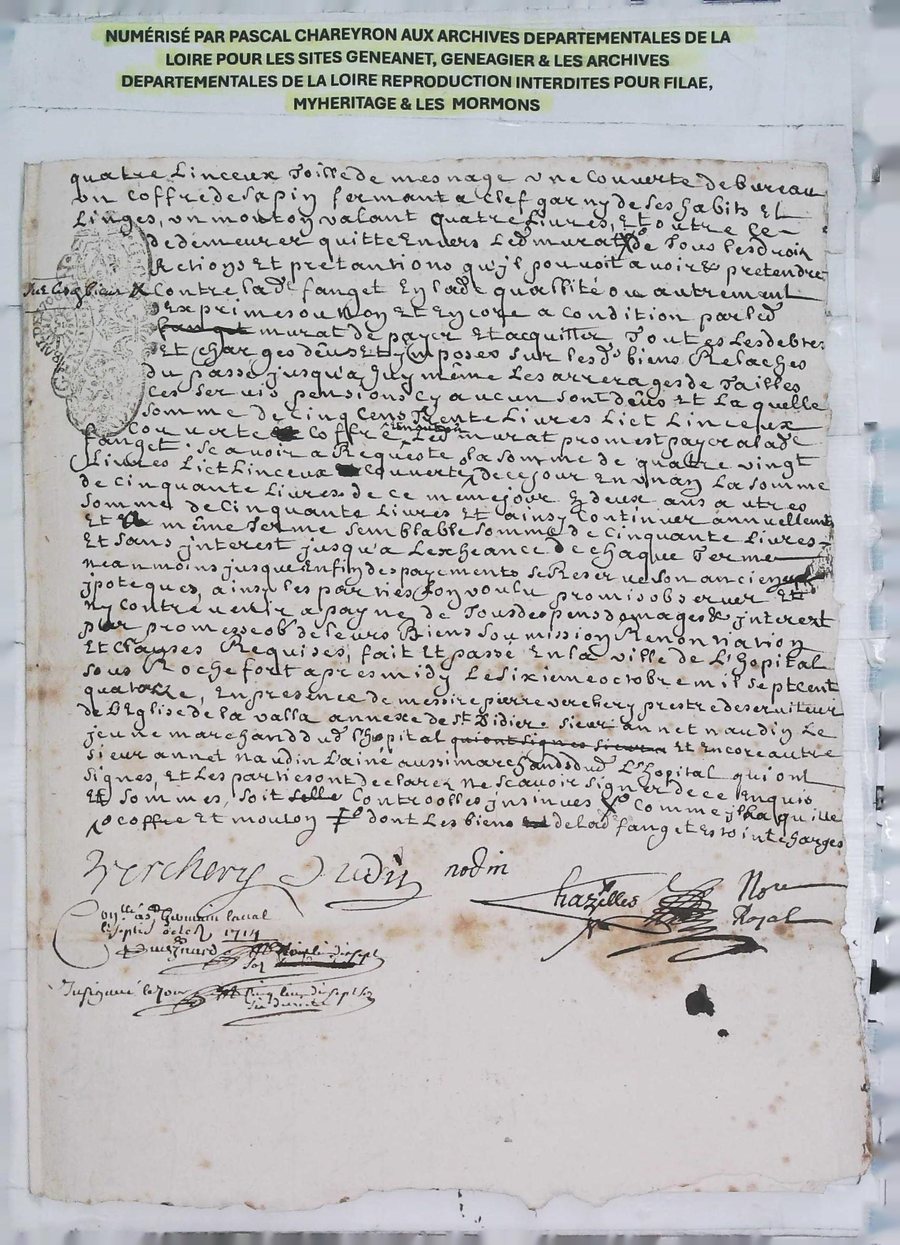 NUMÉRISÉ PAR PASCAL CHAREYRON AUX ARCHIVES DEPARTEMENTALES DE LA
LOIRE POUR LES SITES GENEANET, GENEAGIER & LES ARCHIVES
DEPARTEMENTALES DE LA LOIRE REPRODUCTION INTERDITES POUR FILAE,
MYHERITAGE & LES MORMONS
quatre Linceux Toille de mesnage une Couverte de bureau
un Coffre de sapin fermant a Clef garny de ses habits Et
Linges, un mouton valant quatre Livres, Et outre ce
de demeurer quitte Envers Led murat de Tous les droits
Actions Et pretantions qu'jl pouvoit avoir & pretendre
Contre lade fanget En lade quallité ou autrement
Exprimes ou Non Et Encore a Condition par led
fanget murat de payer Et acquitter, Toutes Les debtes
Et Charges dêus Et ymposex sur les ds biens Relaches
du passé jusqu'a huy même Les arrerages de Tailles
Ces servis pensions sy aucun sont dêus Et La quelle
somme de Cinq Cens Trente Livres Lict Linceux
Couverte Coffre Led murat promest payer a lade
fanget scavoir a Requeste la somme de quatre vingt
Livres Lict Linceux Couverte, de ce jour En un an La somme
de Cinquante Livres de ce meme jour En deux ans autres
somme de Cinquante Livres Et ainsy Continuer annuellemt
Et même Terme semblable somme de Cinquante Livres
Et sans jnterest jusqu'a Lexheance de chaque Terme
neanmoins jusque Enfin des payements, se Reserve son ancien
jpoteques, ainsy les parties Lon voulu promis observer Et
Ny Contrevenir a payne de Tous despens domages & jnterest
par promesse ob de leurs Biens soumission Renontiation
Et Clauses Requises, fait Et passé En La ville de L'hopital
sous Rochefort apres midy Le sixieme octobre mil sept cent
quatorze, En presence de messire pierre verchery prestre deserviteur
de L'Eglise de la valla annexe de St Didier sieur annet naudin Le
jeune marchand dud L'hopital qui ont signes sieur Et Encore autre
sieur annet naudin L'ainé aussi marchand dud L'hopital qui ont
signes, Et Les parties ont declarez ne scavoir signer de ce Enquis
Et sommes, soit Controolles jnsinues Comme jl ha quitte
Coffre Et mouton dont Les biens de lade fanget Estoint charges
Verchery Nodin nodin
Chazelles Nore
Royal
St Germain laval
1714